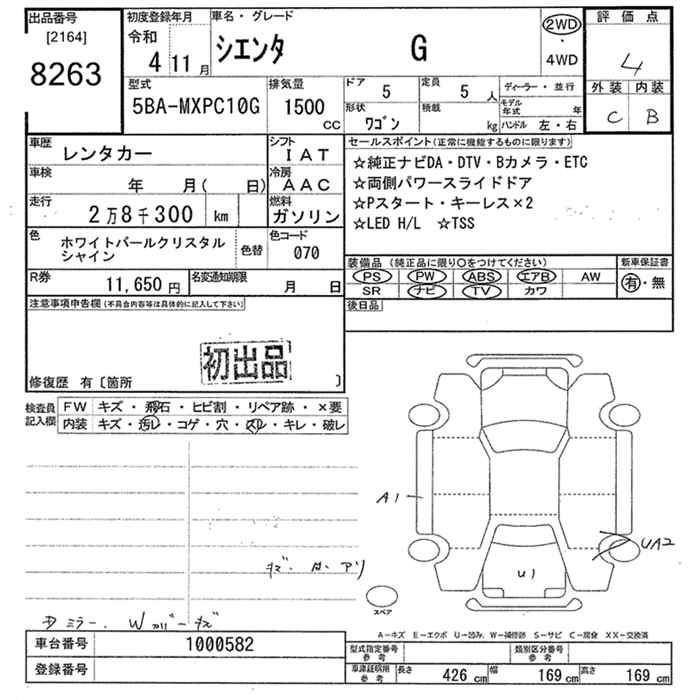 出品番号
[2164]
8263
初度登録年月
令和
4 11 月
車名・グレード
シエンタ G
2WD
・
4WD
評価点
4
外装 内装
C B
型式
5BA-MXPC10G
排気量
1500
cc
ドア 5
定員 5 人
形状 ワゴン
積載 kg
ディーラー・並行
モデル年式 年
ハンドル 左・右
車歴
レンタカー
シフト
IAT
車検
年 月( 日)
冷房
AAC
走行
2万8千300 km
燃料
ガソリン
セールスポイント(正常に機能するものに限ります)
☆純正ナビDA・DTV・Bカメラ・ETC
☆両側パワースライドドア
☆Pスタート・キーレス×2
☆LED H/L ☆TSS
色
ホワイトパールクリスタル
シャイン
色替
色コード
070
装備品(純正品に限り○をつけてください)
PS PW ABS エアB AW
SR ナビ TV カワ
新車保証書
有・無
R券
11,650 円
名変通知期限
月 日
後日品
注意事項申告欄(不具合内容等は具体的に記入して下さい)
初出品
修復歴 有〔箇所 〕
検査員
記入欄
FW キズ・飛石・ヒビ割・リペア跡・×要
内装 キズ・汚レ・コゲ・穴・スレ・キレ・破レ
A1
UA2
U1
スペア
A-キズ E-エクボ U-凹み W-補修跡 S-サビ C-腐食 XX-交換済
車台番号 1000582
登録番号
型式指定番号
参考
類別区分番号
参考
車庫証明用
参考
長さ 426 cm 幅 169 cm 高さ 169 cm